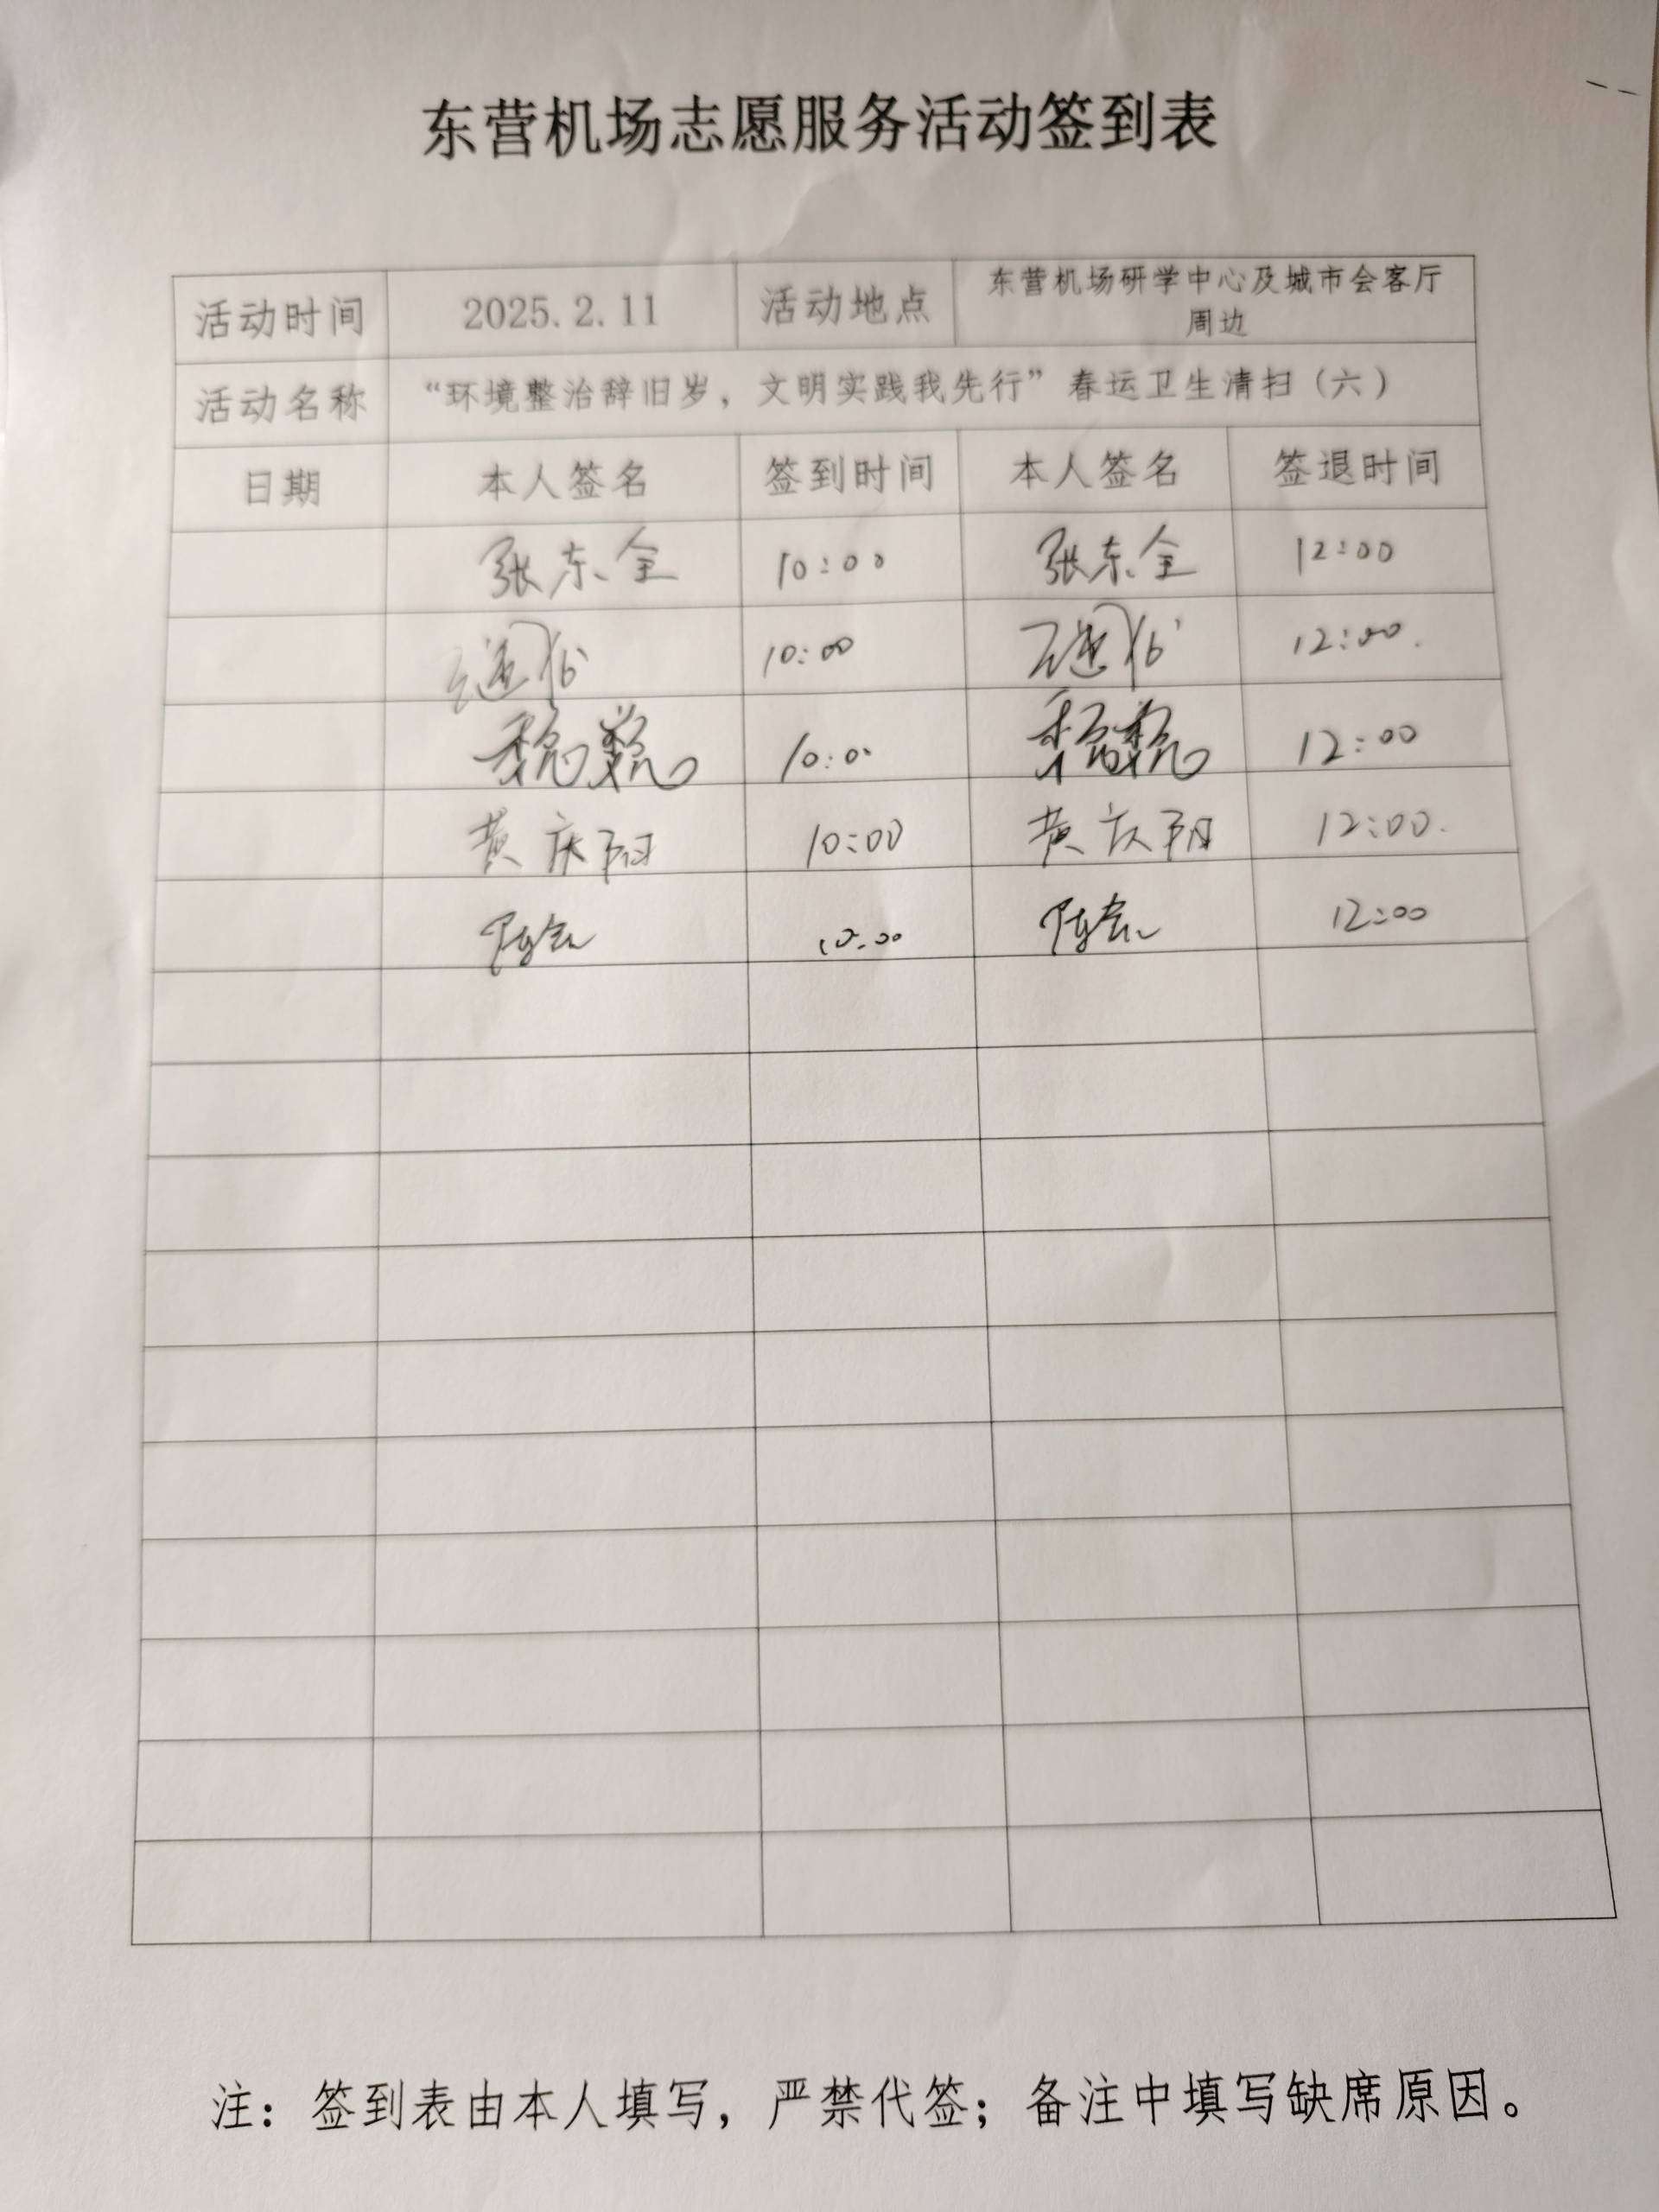 东营机场志愿服务活动签到表
活动时间 2025.2.11 活动地点 东营机场研学中心及城市会客厅
周边
活动名称 “环境整治辞旧岁，文明实践我先行”春运卫生清扫（六）
日期 本人签名 签到时间 本人签名 签退时间
张东全 10:00 张东全 12:00
10:00 12:00.
10:00 12:00
黄庆阳 10:00 黄庆阳 12:00.
10:00 12:00
注：签到表由本人填写，严禁代签；备注中填写缺席原因。